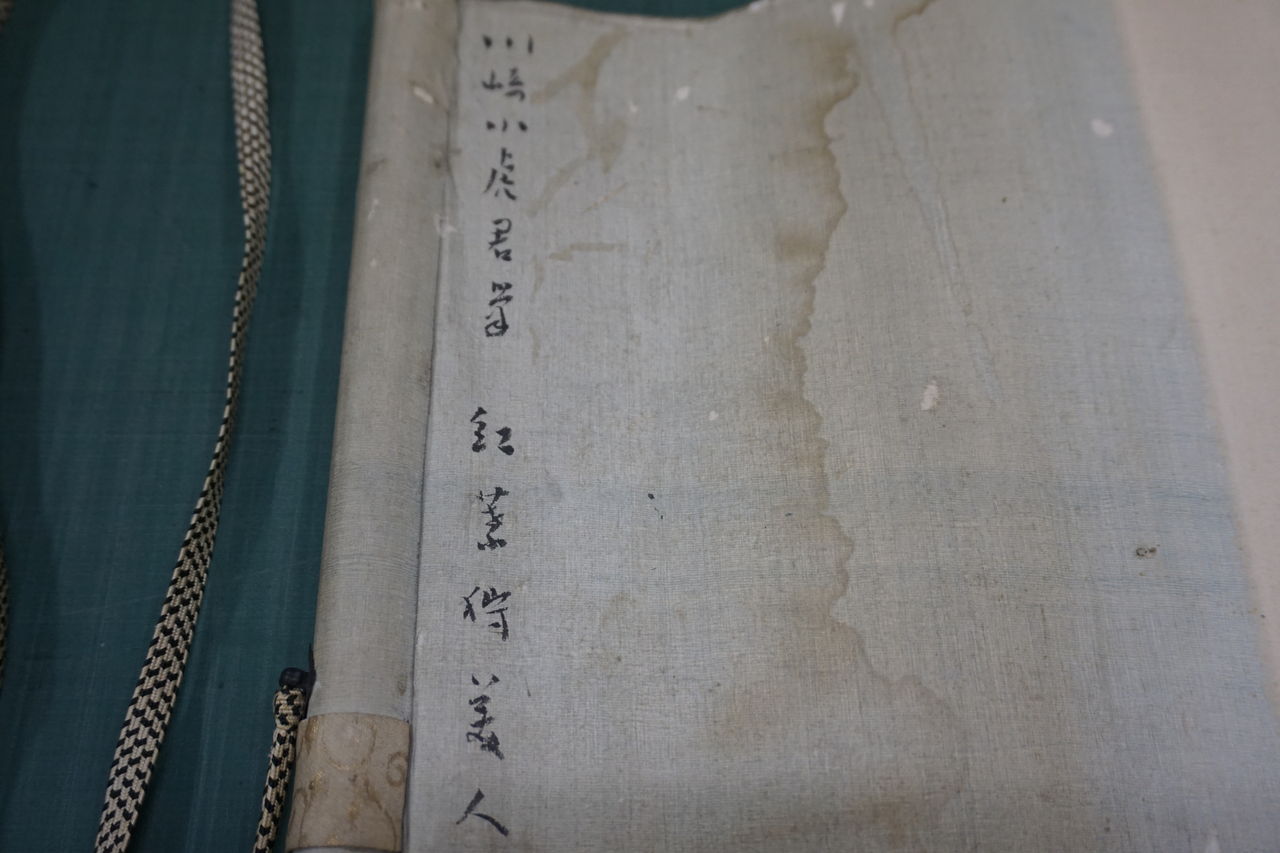 川崎小虎君筆 紅葉狩美人